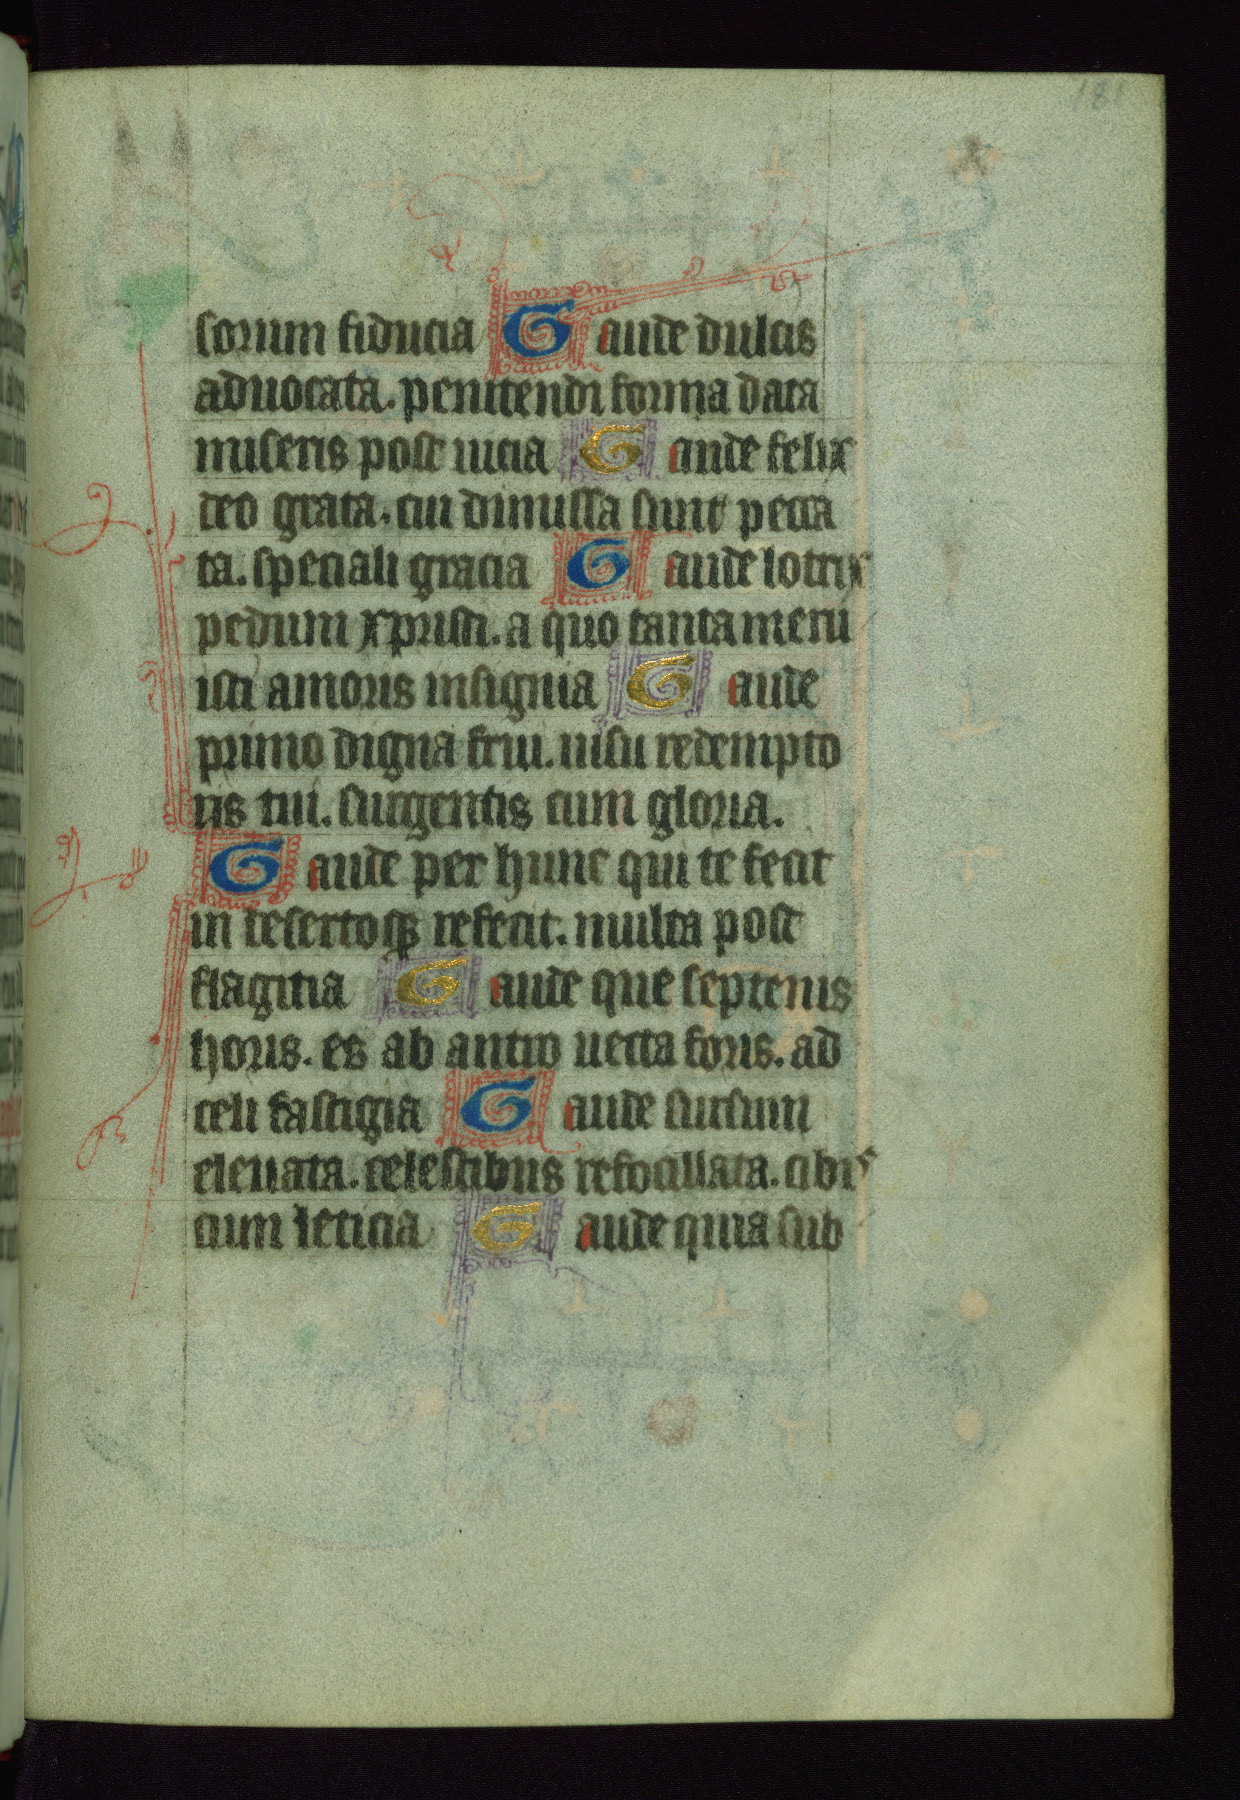 181
sorum fiducia Gaude dulcis
aduocata. penitendi forma data
miseris post uicia Gaude felix
deo grata. cui dimissa sunt pecca
ta. speciali gracia Gaude lotrix
pedum xpristi. a quo tanta meru
isti amoris insignia Gaude
primo digna frui. uisu redempto
ris tui. surgentis cum gloria.
Gaude per hunc qui te fecit
in desertosqꝫ refecit. multa post
flagitia Gaude que septenis
horis. es ab antro uecta foris. ad
celi fastigia Gaude sursum
eleuata. celestibus refocillata. cibis
cum leticia Gaude quia sub